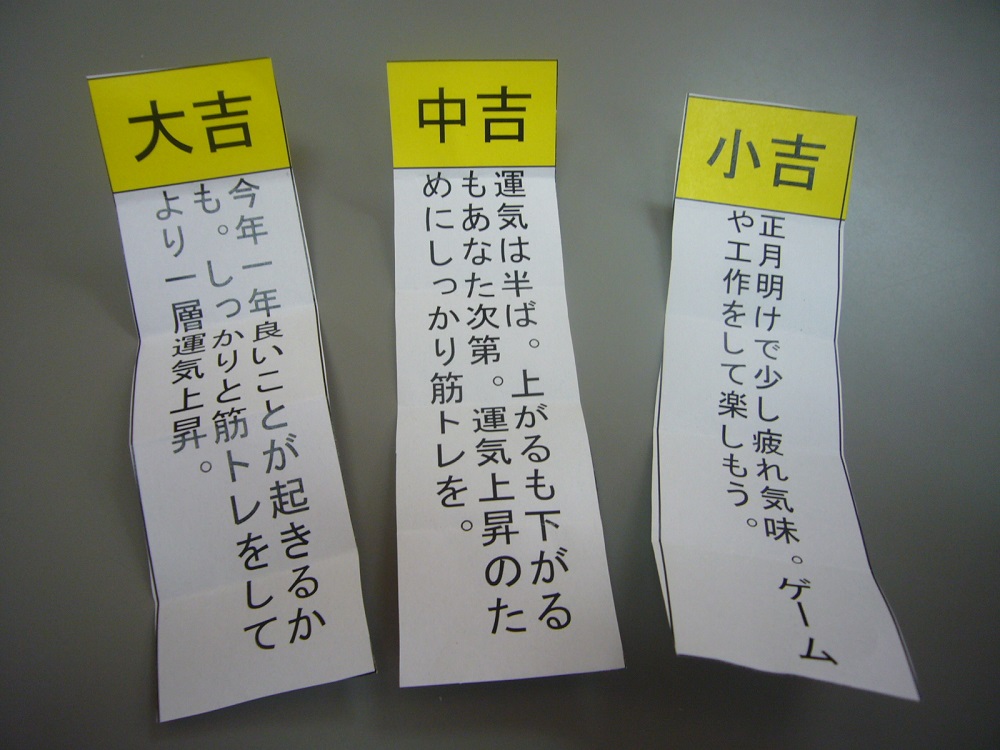 大吉
今年一年良いことが起きるか
も。しっかりと筋トレをして
より一層運気上昇。
中吉
運気は半ば。上がるも下がる
もあなた次第。運気上昇のた
めにしっかり筋トレを。
小吉
正月明けで少し疲れ気味。ゲーム
や工作をして楽しもう。